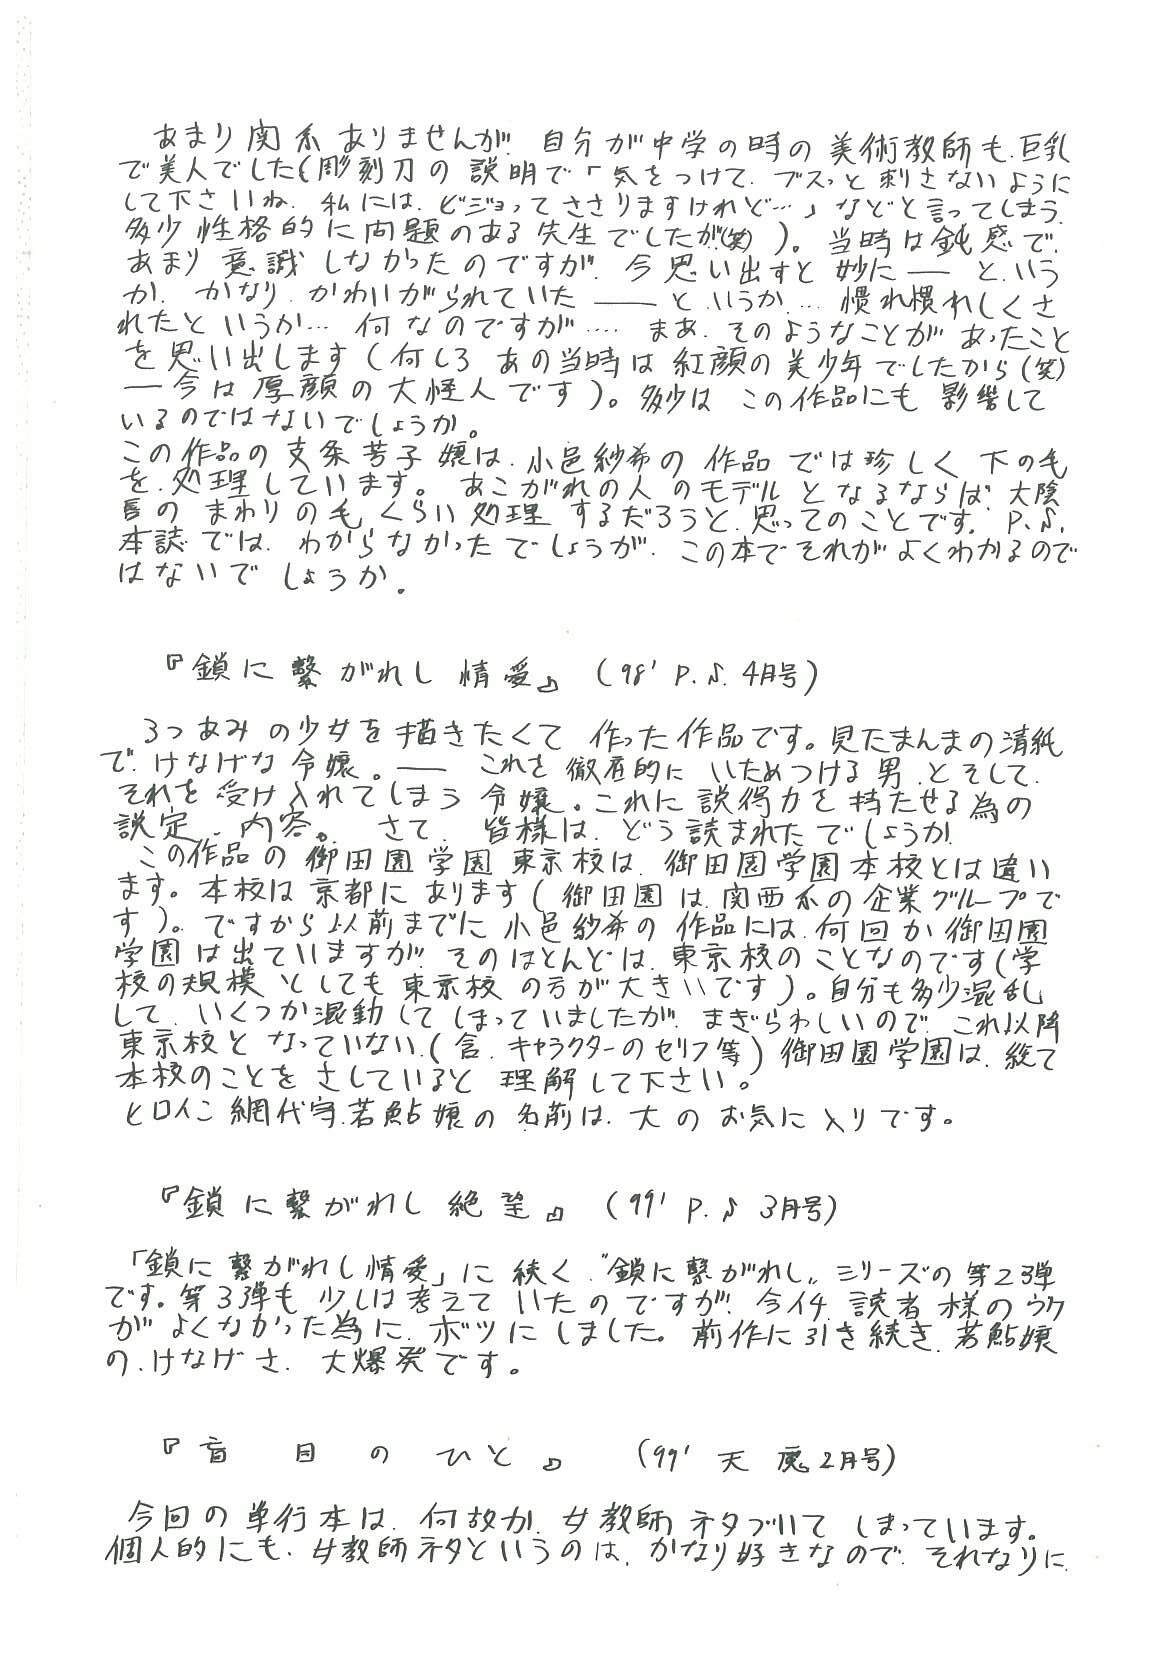 あまり関系ありませんが、自分が中学の時の美術教師も、巨乳
で美人でした(彫刻刀の説明で「気をつけて、ブスッと刺さないように
して下さいね、私には、ビジョってささりますけれど…」などと言ってしまう、
多少性格的に問題のある先生でしたが(笑))。当時は鈍感で、
あまり意識しなかったのですが、今思い出すと妙に―― と、いう
か、かなり、かわいがられていた ―― と、いうか… 慣れ慣れしくさ
れたというか… 何なのですが…. まあ、そのようなことがあったこと
を思い出します(何しろ あの当時は紅顔の美少年でしたから(笑)
―今は厚顔の大怪人です)。多少は この作品にも影響して
いるのではないでしょうか。
この作品の支条芳子嬢は、小邑紗希の作品では珍しく下の毛
を、処理しています。あこがれの人のモデルとなるならば、大陰
唇のまわりの毛くらい処理するだろうと、思ってのことです。P.S.
本誌では、わからなかったでしょうが、この本でそれがよくわかるので
はないでしょうか.
『鎖に繫がれし情愛』(98' P.S.4月号)
3つあみの少女を描きたくて 作った作品です。見たまんまの清純
で、けなげな令嬢。―― これを徹底的に いためつける男、とそして、
それを受け入れてしまう令嬢。これに説得力を持たせる為の
設定、内容。 さて、皆様は、どう読まれたでしょうか.
この作品の御田園学園東京校は、御田園学園本校とは違い
ます。本校は京都にあります(御田園は、関西系の企業グループで
す)。ですから以前までに小邑紗希の作品には、何回か御田園
学園は出ていますが、そのほとんどは、東京校のことなのです(学
校の規模としても東京校の方が大きいです)。自分も多少混乱
して、いくつか混動してしまっていましたが、まぎらわしいので、これ以降
東京校となっていない、(含、キャラクターのセリフ等)御田園学園は、総て
本校のことをさしていると理解して下さい。
ヒロイン網代守、若鮎嬢の名前は、大のお気に入りです。
『鎖に繫がれし絶望』(99' P.S 3月号)
「鎖に繫がれし情愛」に続く、"鎖に繫がれし"シリーズの第2弾
です。第3弾も少しは考えていたのですが、今イチ、読者様のウケ
がよくなかった為に、ボツにしました。前作に引き続き、若鮎嬢
の、けなげさ、大爆発です。
『盲目のひと』 (99' 天魔2月号)
今回の単行本は、何故か、女教師ネタづいてしまっています。
個人的にも、女教師ネタというのは、かなり好きなので、それなりに、